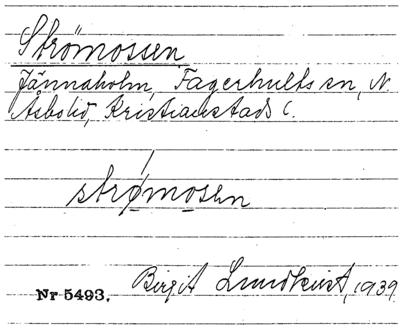 Strömossen
Jännaholm, Fagerhults sn, N.
Åsbo hd, Kristianstads l.
strømosen
Nr 5493. Birgit Lundkvist, 1939.